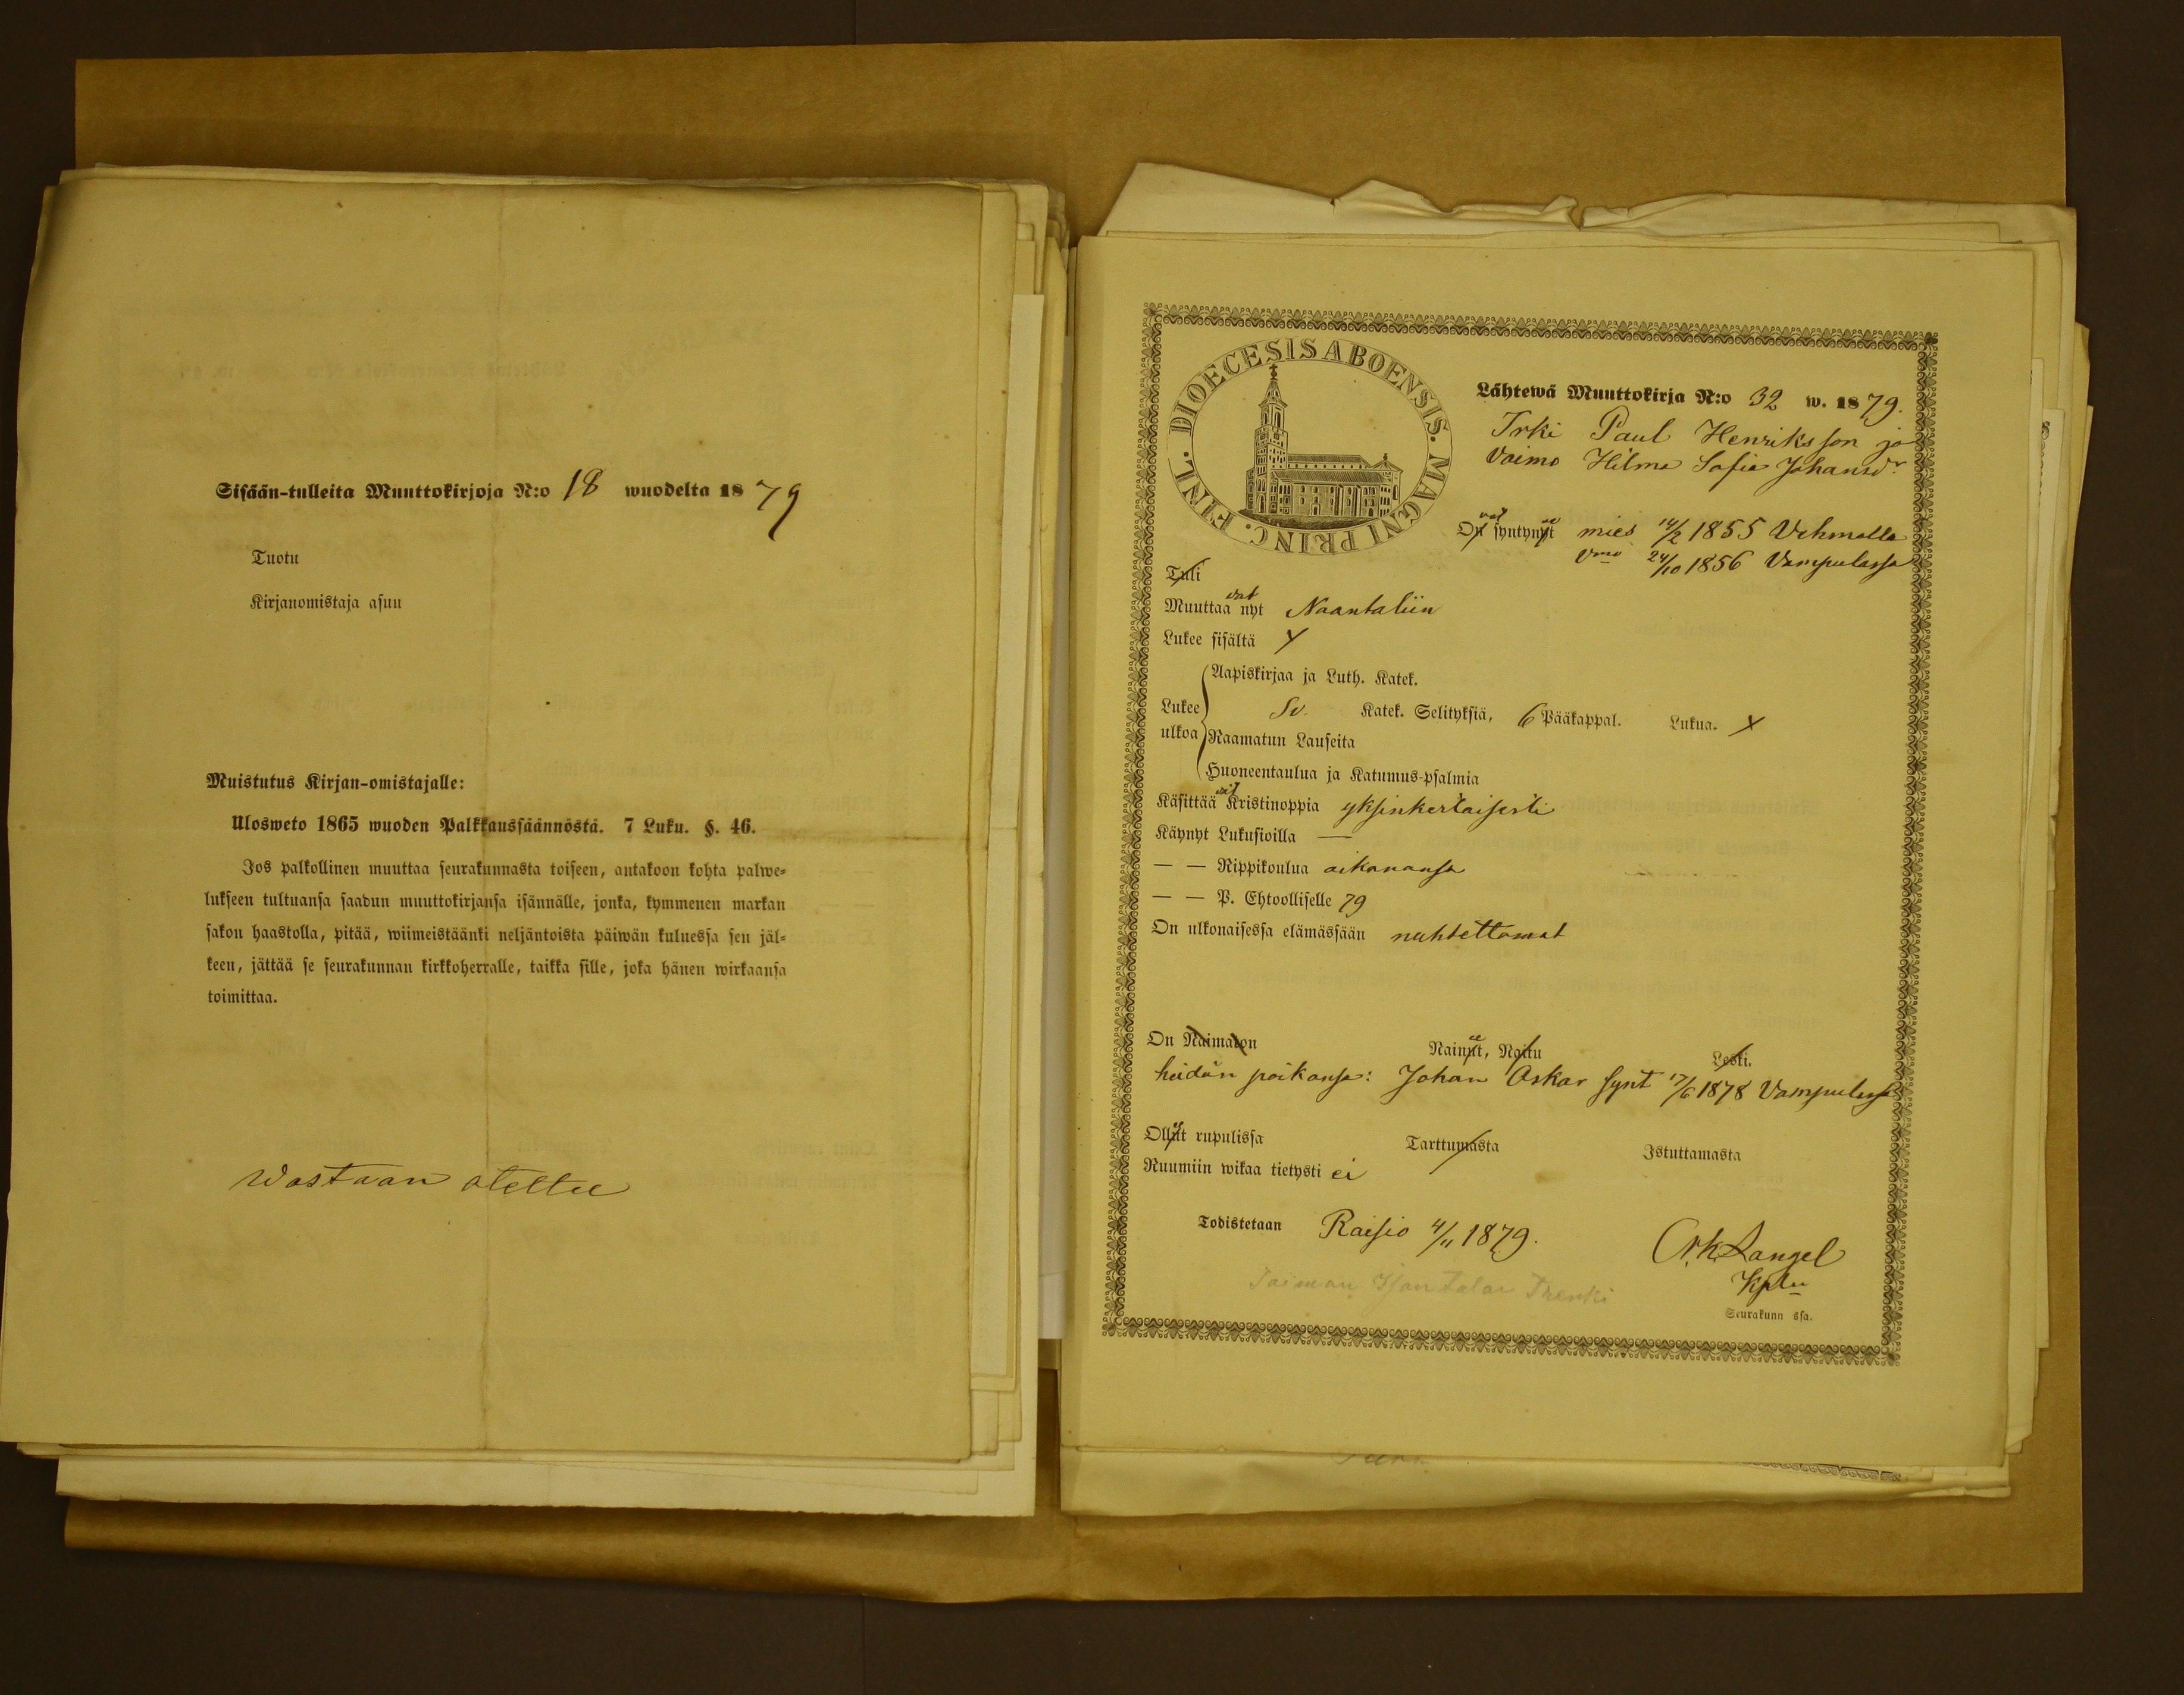 Sisään-tulleita Muuttokirjoja N:o 18 wuodelta 1879
Tuotu
Kirjanomistaja asuu
Muistutus Kirjan-omistajalle:
Ulosweto 1865 wuoden Palkkaussäännöstä. 7 Luku. §. 46.
Jos palkollinen muuttaa seurakunnasta toiseen, antakoon kohta palwe=
lukseen tultuansa saadun muuttokirjansa isännälle, jonka, kymmenen markan
sakon haastolla, pitää, wiimeistäänki neljäntoista päiwän kuluessa sen jäl=
keen, jättää se seurakunnan kirkkoherralle, taikka sille, joka hänen wirkaansa
toimittaa.
Wastaan otettu
DIOECESIS ABOENSIS. MAGNI PRINC. FINL.
Lähtewä Muuttokirja N:o 32 w. 1879.
Trki Paul Henriksson ja
Vaimo Hilma Sofia Johansdr
Ovat syntynyt mies 14/2 1855 Vehmalla
Vmo 24/10 1856 Vampulassa
Tuli
Muuttaavat nyt Naantaliin
Lukee sisältä X
Aapiskirjaa ja Luth. Katek.
Lukee ulkoa Sv. Katek. Selityksiä, 6 Pääkappal. Lukua. X
Raamatun Lauseita
Huoneentaulua ja Katumus-psalmia
Käsittäävät Kristinoppia yksinkertaisesti
Käynyt Lukusioilla —
— — Rippikoulua aikanansa
— — P. Ehtoolliselle 79
On ulkonaisessa elämässään nuhtettomat
On Naimaton Nainut, Naitu Leski.
heidän poikansa: Johan Oskar synt 17/6 1878 Vampulassa
Ollut rupulissa Tarttumasta Istuttamasta
Ruumiin wikaa tietysti ei
Todistetaan Raisio 4/11 1879.
Langel
Kpln
Seurakunn ssa.